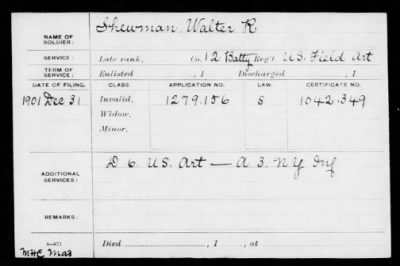 NAME OF SOLDIER: Shewman Walter R
SERVICE: Late rank, Co. 12 Batty Reg't U.S. Field Art
TERM OF SERVICE: Enlisted , 1 Discharged , 1
DATE OF FILING. CLASS. APPLICATION NO. LAW. CERTIFICATE NO.
1901 Dec 31 Invalid, 1279.156 S 1042.349
Widow,
Minor,
ADDITIONAL SERVICES: D 6. U.S. Art — A 3. N.Y Inf
REMARKS:
Died , 1 , at